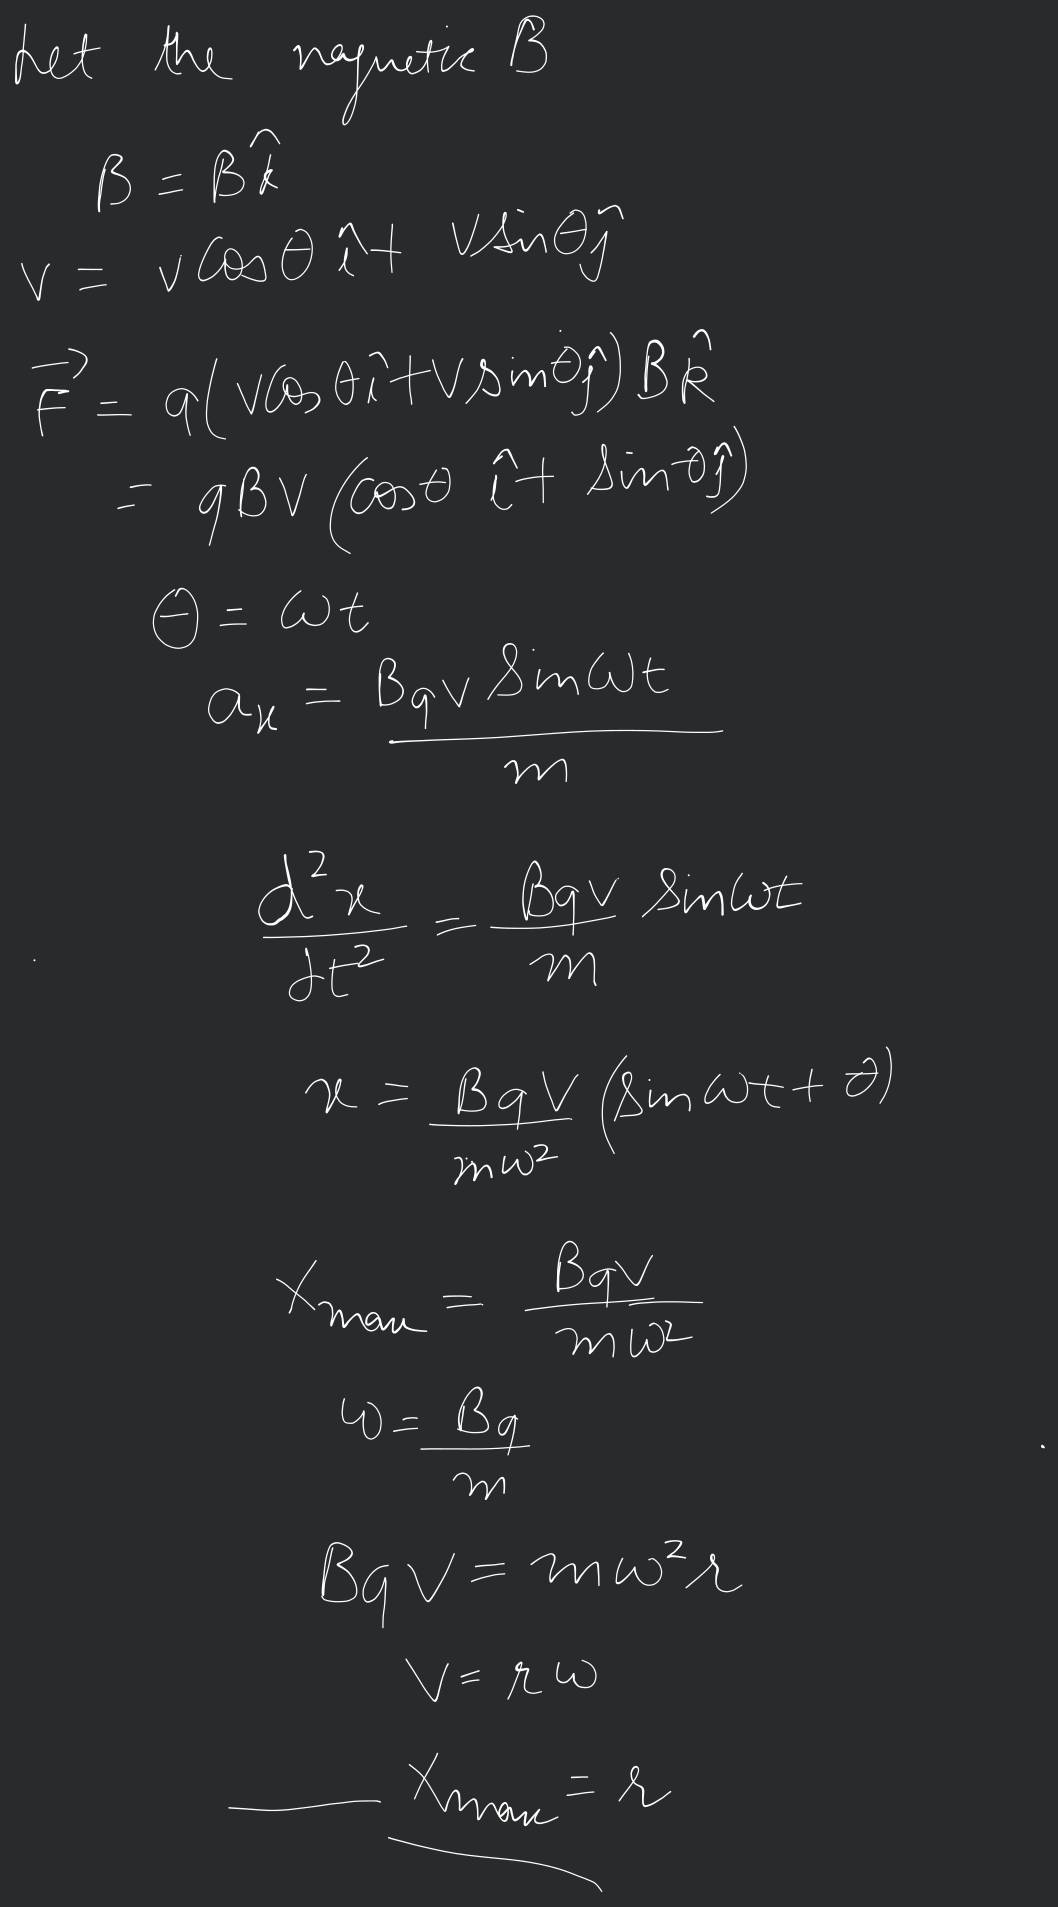 Let the magnetic B
B = Bk̂
v = vcosθ î + vsinθĵ
F⃗ = q(vcosθî + vsinθĵ)Bk̂
= qBV (cosθ î + sinθĵ)
θ = ωt
aₓ = Bqv Sinωt / m
d²x/dt² = Bqv/m Sinωt
x = Bqv/mω² (Sinωt + θ)
Xmax = Bqv/mω²
ω = Bq/m
Bqv = mω²r
V = rω
Xmax = r